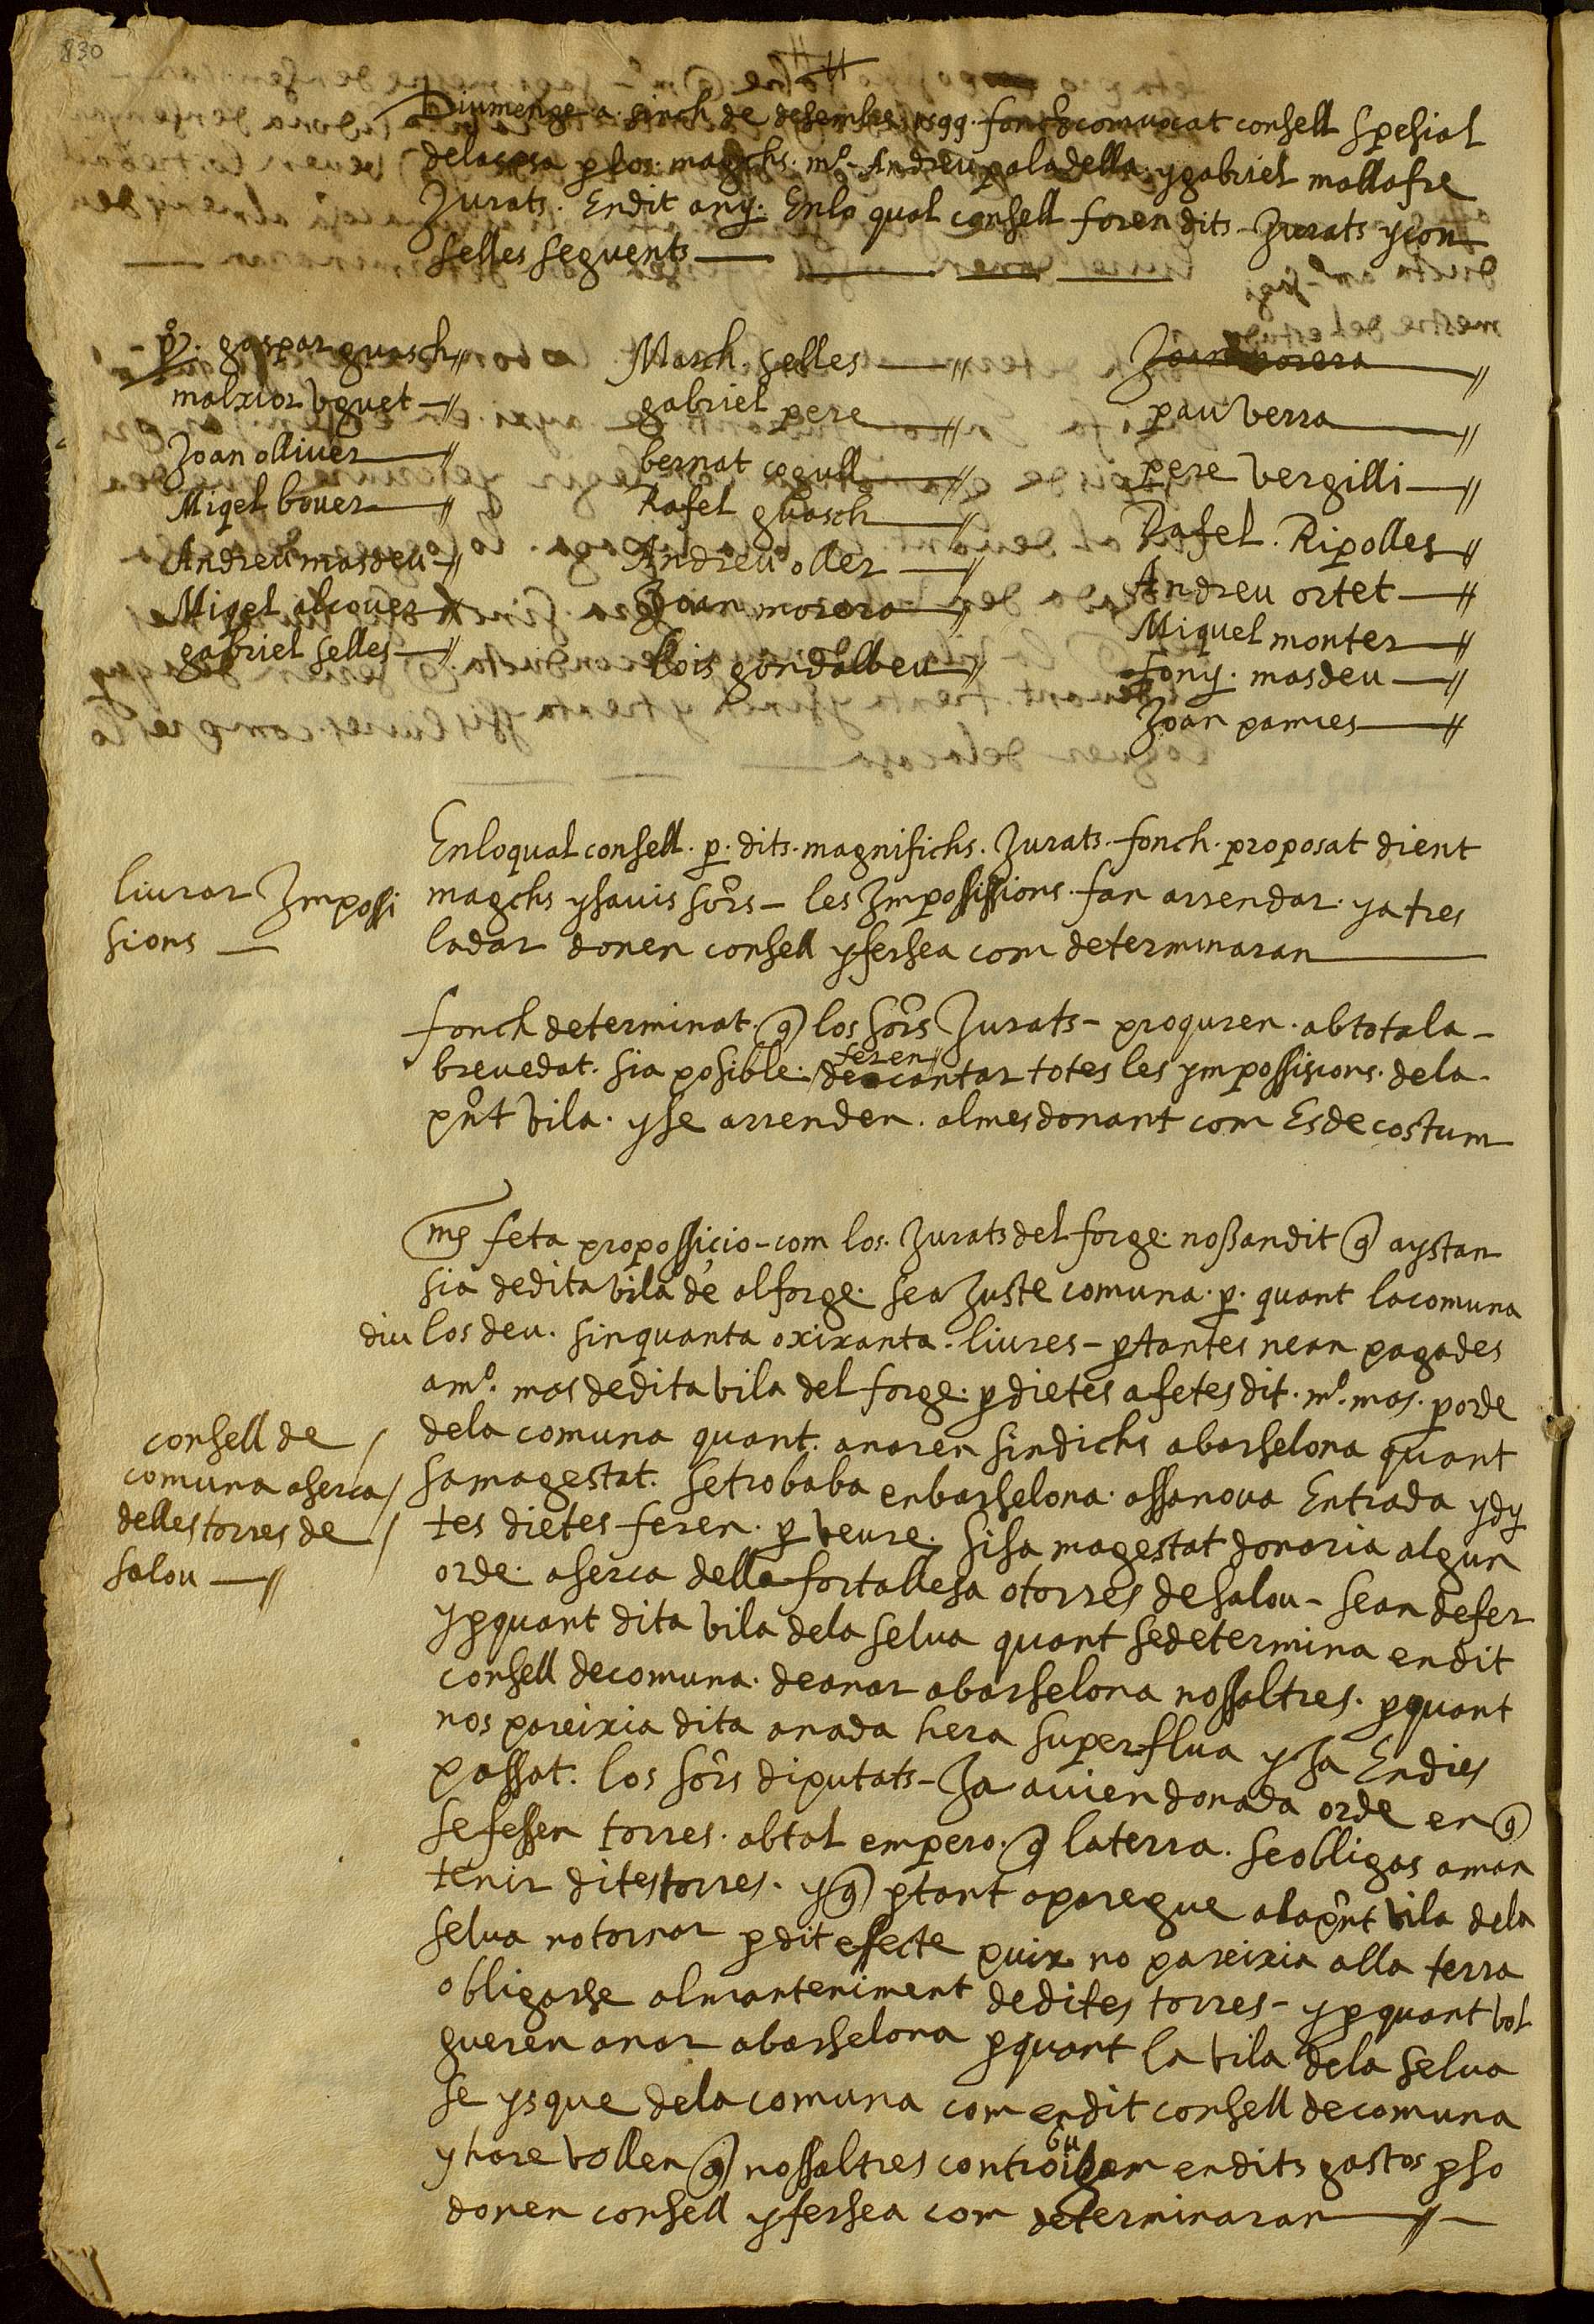 830
Diumenge a sinch de desembre 1599 fonch comvocat consell spesial
dela casa p los magchs. mº Andreu paladella y gabriel mallafre
Jurats. En dit any. En lo qual consell foren dits Jurats y con
selles seguents
pº. gaspar guasch
malxior voguet
Joan olliver
Miqel bover
Andreu masdeu
Miqel alcover
gabriel selles
March selles
gabriel pere
bernat cogull
Rafel guasch
Andreu oller
Joan morera
llois gondalbeu
Joan morera
pau verra
pere vergilli
Rafel. Ripolles
Andreu ortet
Miquel monter
tony. masdeu
Joan pamies
liurar Imposi
sions
En lo qual consell. p. dits. magnifichs. Jurats. fonch. proposat dient
magchs y savis sors - les Imposissions. fan arrendar. y a tres
ladar donen consell y fersea com determinaran
fonch determinat. q los sors Jurats - proquren. ab tota la
brevedat. sia posible. feren descantar totes les ympossisions. dela
pnt vila. y se arrenden. al mes donant com Es de costum
consell de
comuna aserca
delles torres de
salou
ms feta propossicio - com los. Jurats del forge. nos an dit q aystan
sia de dita vila de alforge. sea Juste comuna. p. quant la comuna
diu los deu. sinquanta o xixanta. liures - p tantes nean pagades
a mº. mas de dita vila del forge. p dietes a fetes dit. mº. mas. p orde
dela comuna quant. anaren sindichs a barselona quant
sa magestat. se trobaba en barselona. assa nova Entrada y dy
tes dietes feren. p veure. si sa magestat donaria algun
orde. aserca della fortallesa o torres de salou - sean de fer
y p quant dita vila dela selva quant se determina en dit
consell de comuna. de anar a barselona nossaltres. p quant
nos pareixia dita anada hera superflua y Ja En dies
passat. los sors diputats - Ja avien donada orde en q
se fessen torres. ab tal empero. q la terra. se obligas a man
tenir dites torres. y q p tant aparegue ala pnt vila dela
selva no tornar p dit effecte puix no pareixia alla terra
obligarse al manteniment de dites torres - y p quant vol
gueren anar a barselona p quant la vila dela selva
se ysque dela comuna com en dit consell de comuna
y hare vollen q nossaltres controibuam en dits gastos p so
donen consell y fersea com determinaran